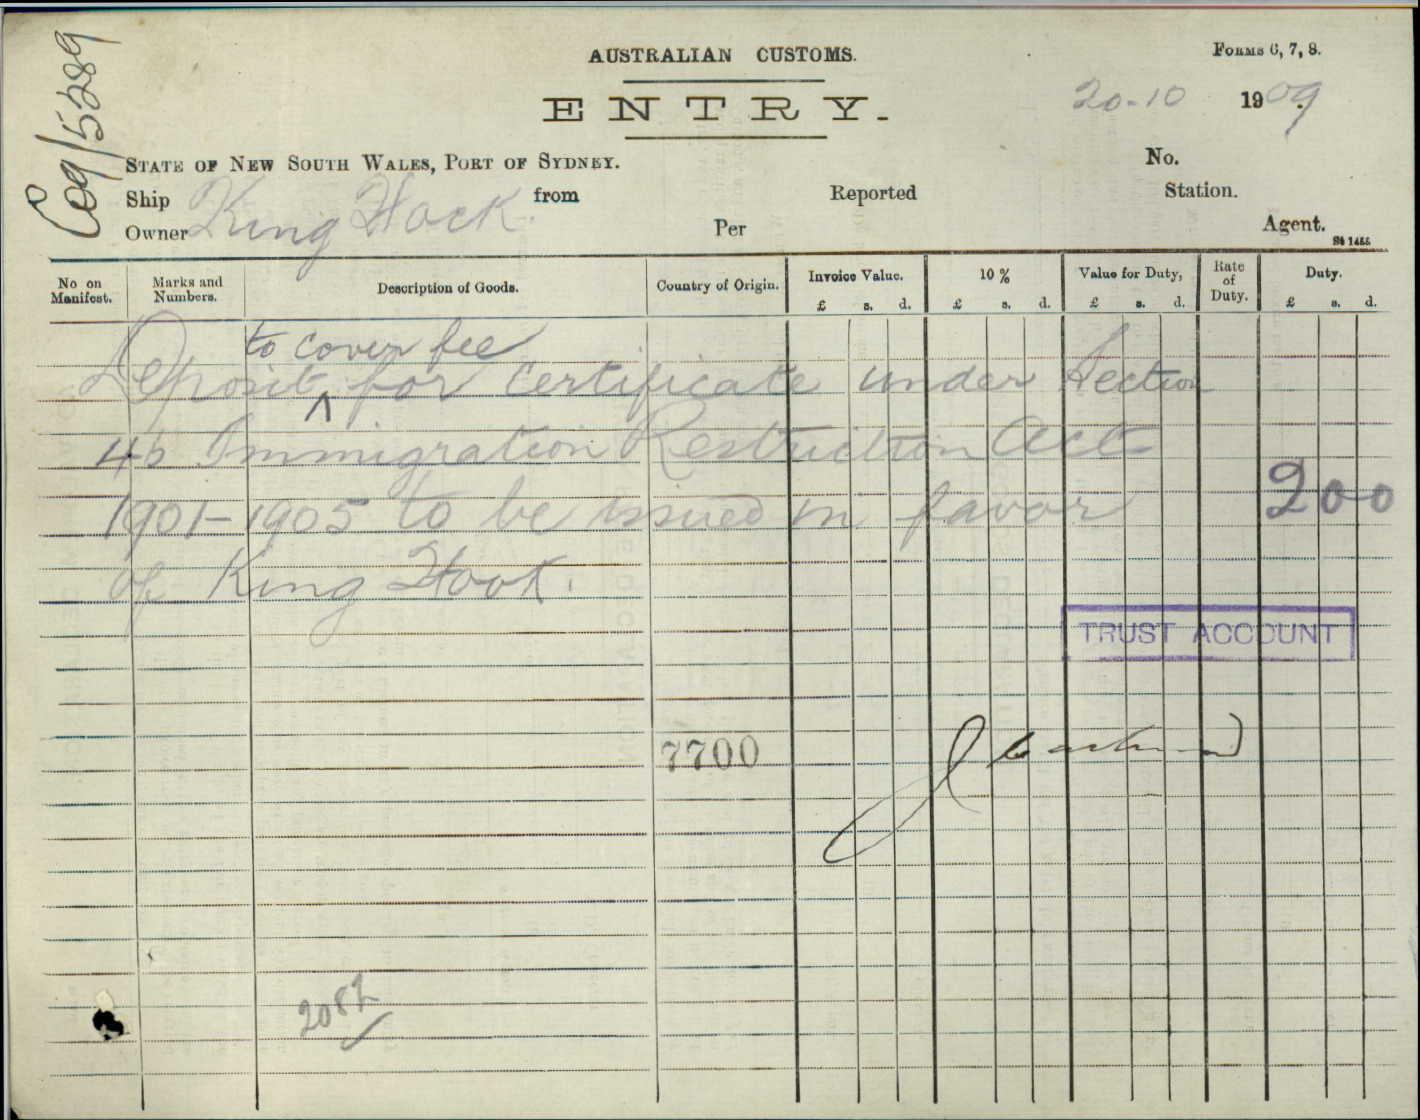 C09/5289
AUSTRALIAN CUSTOMS.
FORMS 6, 7, 8.
ENTRY.
20-10 1909.
STATE OF NEW SOUTH WALES, PORT OF SYDNEY.
No.
Ship from Reported Station.
Owner King Hock. Per Agent.
St 1455
No on Manifest. Marks and Numbers. Description of Goods. Country of Origin. Invoice Value. 10 % Value for Duty, Rate of Duty. Duty.
£ s. d. £ s. d. £ s. d. £ s. d.
to cover fee
Deposit ^ for certificate under Section
4b Immigration Restriction Act
1901-1905 to be issued in favor 2 0 0
of King Hook.
TRUST ACCOUNT
7700
208